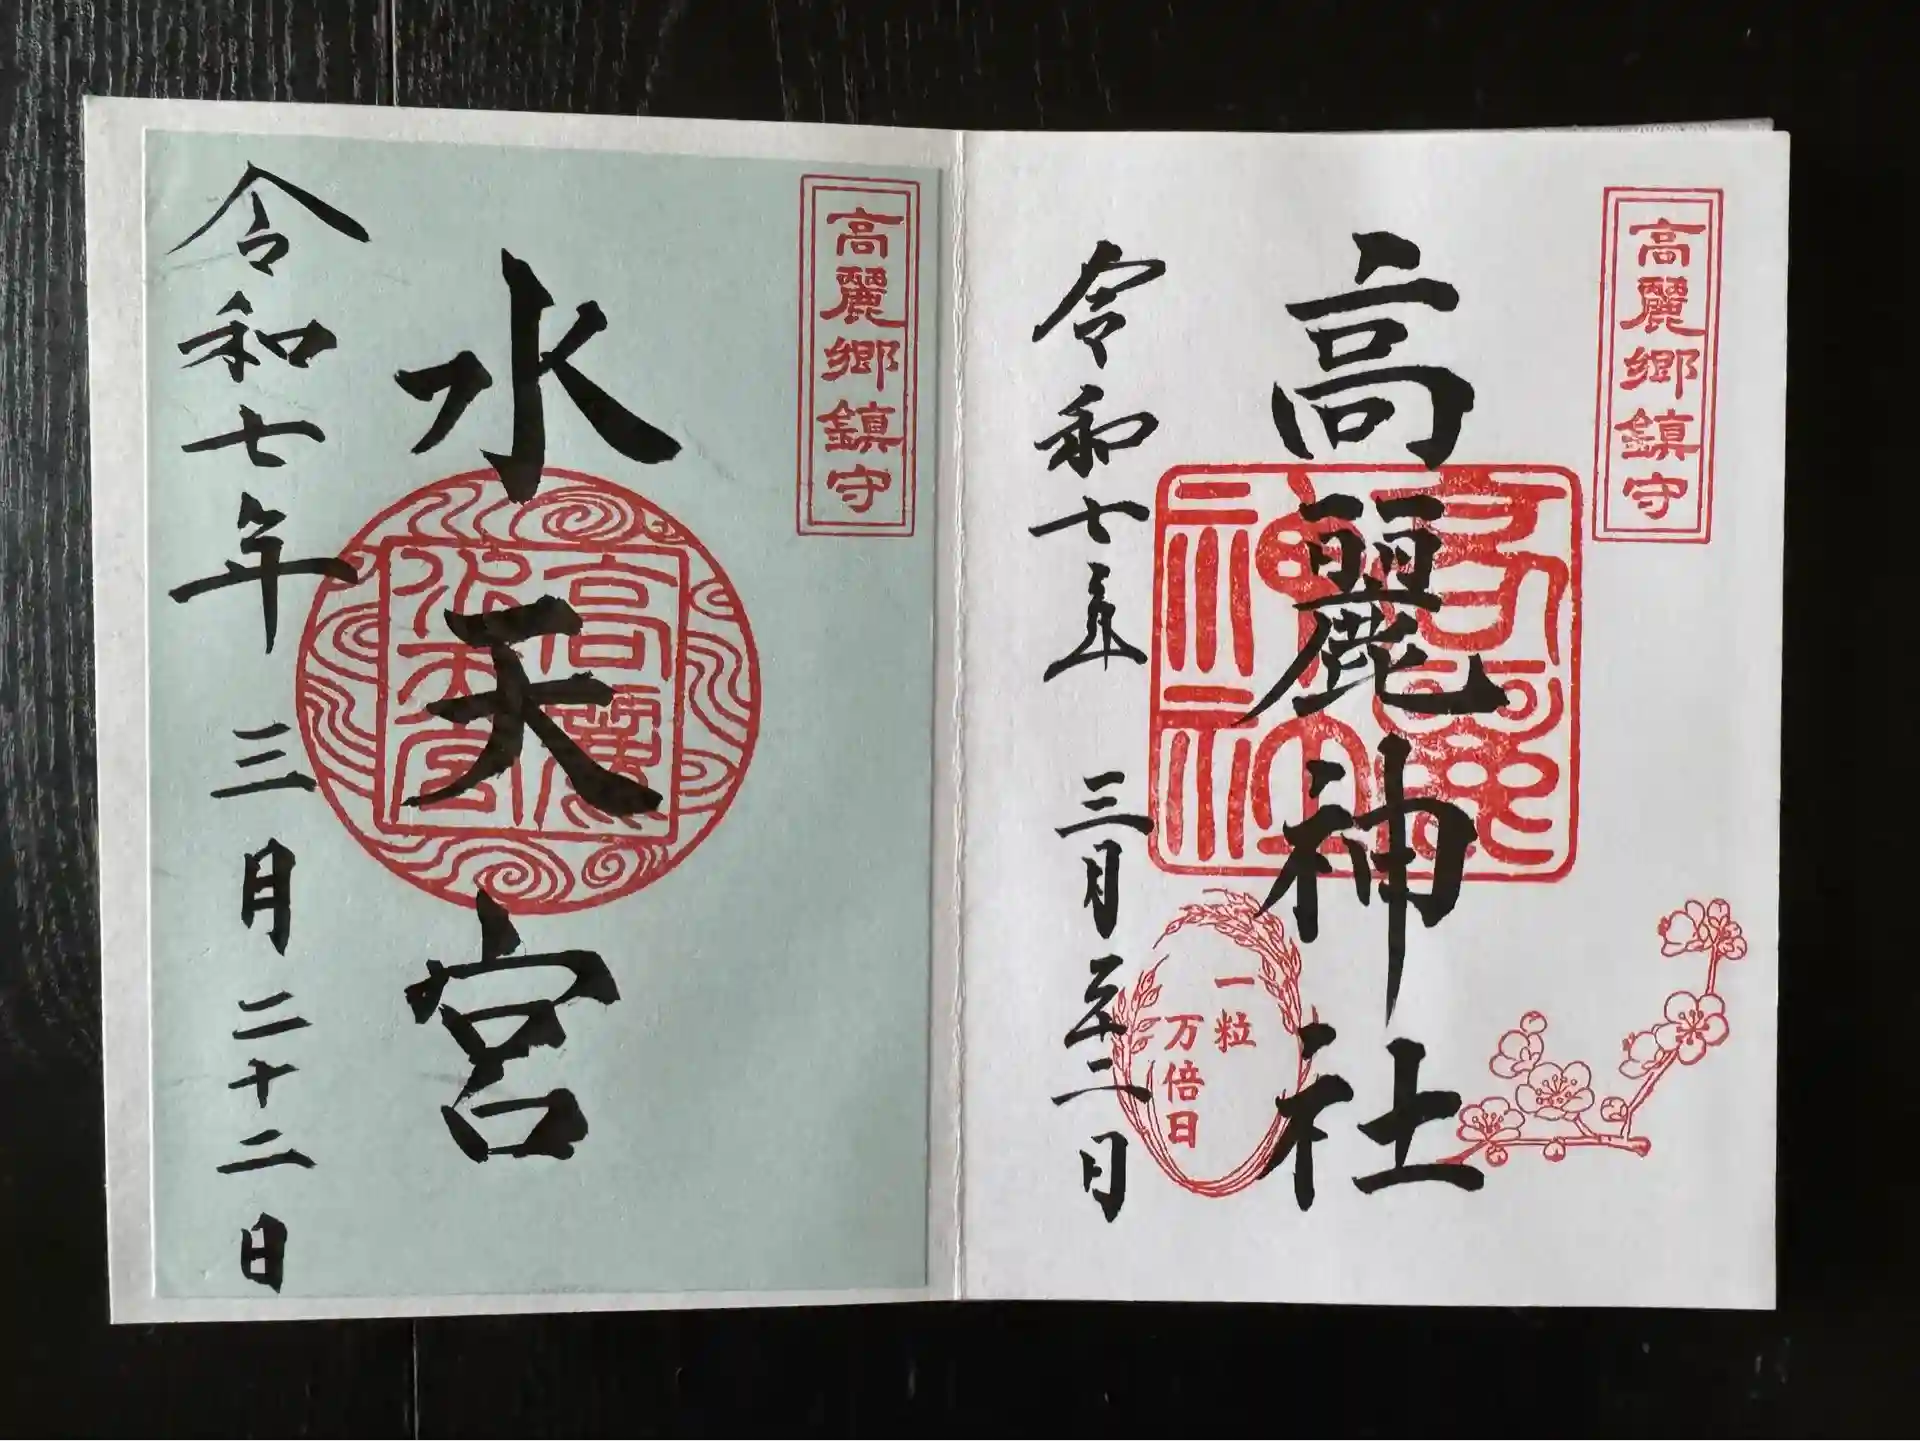 高麗郷鎮守
高麗神社
高麗神社
一粒
万倍日
令和七年 三月二十二日
高麗郷鎮守
水天宮
高麗
水天宮
令和七年 三月二十二日